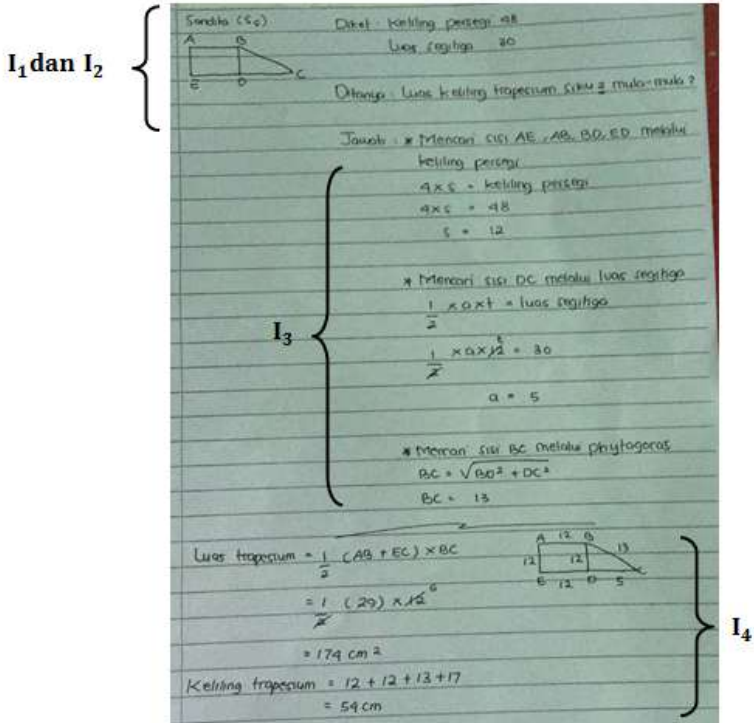 Sandita (S5)
A B
E D C
I₁ dan I₂
Diket : Keliling persegi 48
Luas segitiga 30
Ditanya : Luas keliling trapesium siku² mula-mula ?
Jawab : * Mencari sisi AE, AB, BD, ED melalui
keliling persegi
4 x s = keliling persegi
4 x s = 48
s = 12
* Mencari sisi DC melalui luas segitiga
1/2 x a x t = luas segitiga
I₃
1/2 x a x 12 6 = 30
a = 5
* Mencari sisi BC melalui phytagoras
BC = √BD² + DC²
BC = 13
Luas trapesium = 1/2 (AB + EC) x BC
A 12 B
12 12 13
E 12 D 5 C
= 1/2 (29) x 12 6
I₄
= 174 cm²
Keliling trapesium = 12 + 12 + 13 + 17
= 54 cm